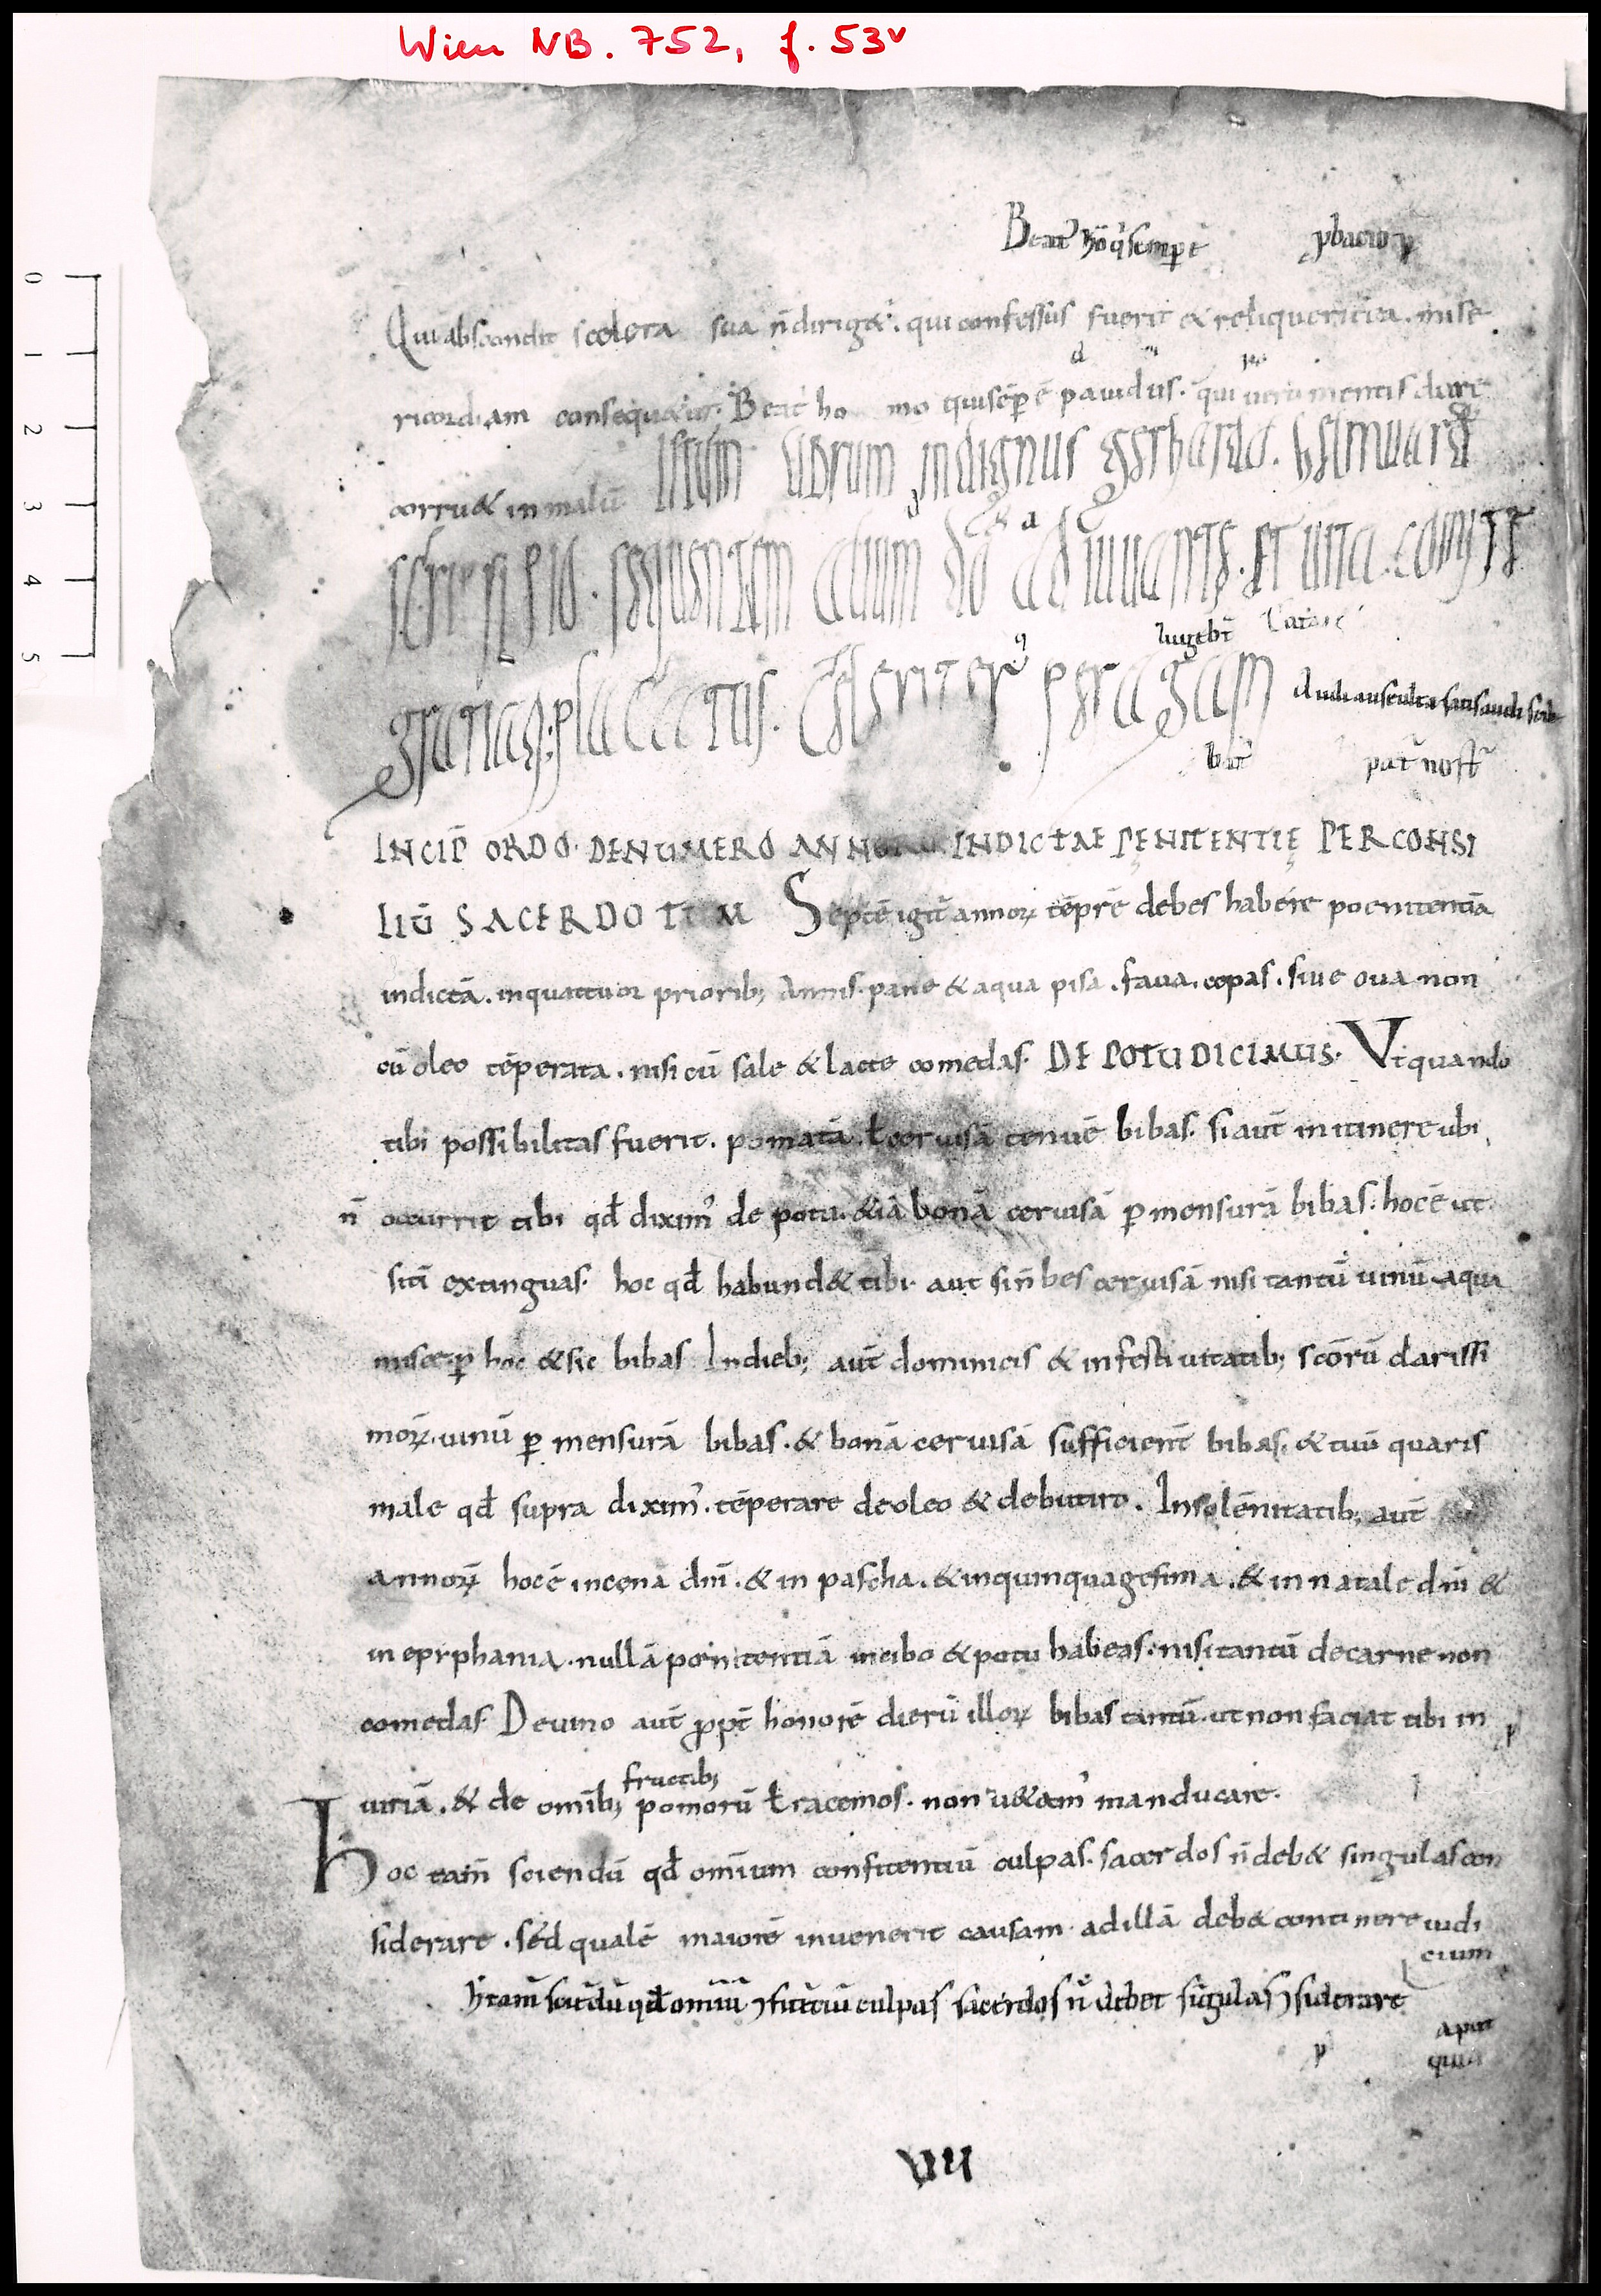 Wien NB. 752, f. 53v
Beat᾽ hō q̇ semꝑ ē ꝓbatio ꝓ
Qui abscondit scelera sua n̄ dirig&ur. qui confessus fuerit & reliquerit ea. mise
ricordiam consequ&ur. Beat᾽ ho mo qui sēꝑ ē pavidus. qui vero mentis dure
corru& in malū Istum librum indignus gerhardꝰ. helmuuard
scripsi p̄o. sequentem alium dō adiuuante. et uita. comite
gratiaq; placatus. Celeriter peragam
lugebt̄ Audi ausculta satis audi
bat᾽ pat᾽ nost᾽
INCIP̄ ORDO. DE NUMERO ANNORU INDICTAE PENITENTIĘ PER CONSI
LIŪ SACERDOTUM Septē igit᾽ annoꝝ tēpr̄e debes habere poenitentiā
indictā. in quattuor priorib; Annis. pane & aqua pisa. fava. cepas. sive ova non
cū oleo tēperata. nisi cū sale & lacte comedas. DE POTU DICIMUS. Vt quando
tibi possibilitas fuerit. pomatā. ł cervisā tenuē bibas. si aut̄ in itinere ubi
n̄ occurrit tibi qđ dixim᾽ de potu. &iā bonā cervisā ꝑ mensurā bibas. hoc ē ut
sitī extinguas. hoc qđ habund& tibi. aut si n̄ bes cervisā nisi tantū vinū. aqua
misce. ꝑ hoc & sic bibas Indieb; aut̄ dominicis & in festivitatib; scōrū clarissi
moꝝ. vinū ꝑ mensurā bibas. & bonā cervisā sufficient̄ bibas. & tuū quaris
male qđ supra dixim᾽. tēperare de oleo & de butiro. In solēnitatib; aut̄
annoꝝ hoc ē in cena dn̄i. & in pascha. & in quinquagesima. & in natale dn̄i &
in epyphania. nullā poenitentiā in cibo & potu habeas. nisi tantū de carne non
comedas. De vino aut̄ ꝓpt̄ honorē dierū illoꝝ bibas tantū. ut non faciat tibi in
fructib;
iuriā. & de omīb; pomorū ł racemos. non v&am᾽ manducare.
Hoc tam̄ sciendū qđ omnium confitentiū culpas. sacerdos n̄ deb& singulas con
siderare. sed qualē maiorē invenerit causam. ad illā deb& continere iudi
cium
H̄ tam̄ sciēdū qđ omīū ꝯfitētiū culpas sacerdos n̄ debet sīgulas ꝯsiderare
aput
quia
VII
0
1
2
3
4
5